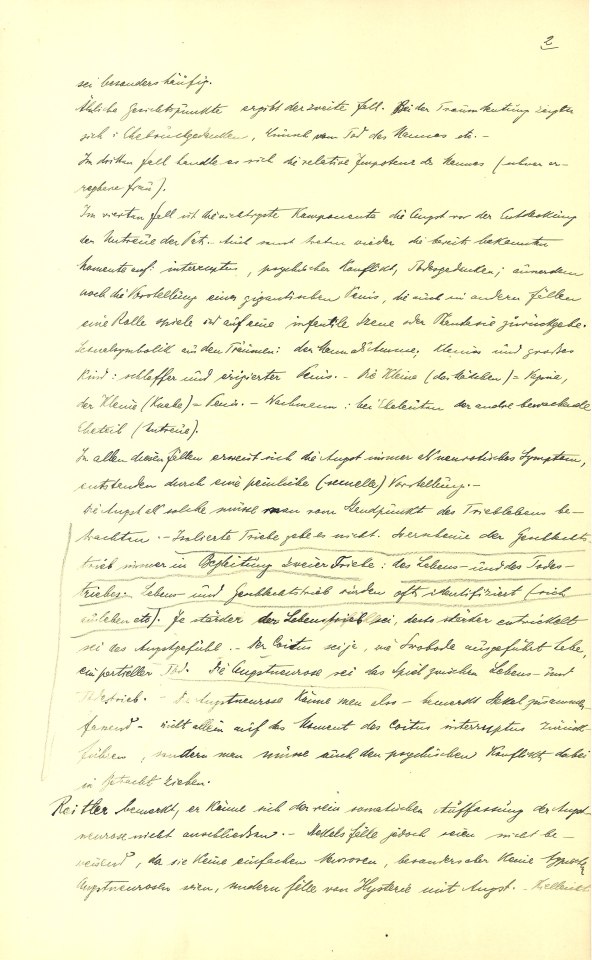 2
sei besonders häufig.
Ähnliche Gesichtspunkte ergibt der zweite Fall. Bei der Traumdeutung zeigten
sich: Ehebruchgedanken, Wunsch vom Tod des Mannes etc. –
Im dritten Fall handle es sich die relative Impotenz des Mannes (schwer er-
regbare Frau).
Im vierten Fall ist die wichtigste Komponente die Angst vor der Entdeckung
der Untreue der Pat. – Auch sonst treten wieder die bereits bekannten
Momente auf: interruptus, psychischer Konflikt, Todesgedanken; ausserdem
noch die Vorstellung eines gigantischen Penis, die auch in andern Fällen
eine Rolle spiele und auf eine infantile Szene oder Phantasie zurückgehe.
Sexualsymbolik aus den Träumen: der Mann Stimme; kleines und grosses
Kind: schlaffer und erigierter Penis. – Die Kleine (das Mädchen) = Vagina,
der Kleine (Knabe) = Penis. – Wachmann: bei Eheleuten der andre bewachende
Eheteil (Untreue).
In allen diesen Fällen erweist sich die Angst immer als neurotisches Symptom,
entstanden durch eine peinliche (sexuelle) Vorstellung. –
Die Angst als solche müsse man vom Standpunkt des Trieblebens be-
trachten. – Isolierte Triebe gebe es nicht. erscheine der Geschlechts-
trieb immer in Begleitung zweier Triebe: des Lebens- und des Todes-
triebes. Lebens- und Geschlechtstrieb würden oft identifiziert (sich
ausleben etc). Je stärker der Lebenstrieb sei, desto stärker entwickelt
sei das Angstgefühl. – Der Coitus sei ja, wie Swoboda ausgeführt habe,
ein partieller Tod. Die Angstneurose sei das Spiel zwischen Lebens- und
Todestrieb. – Die Angstneurose könne man also – bemerkt Stekel zusammen-
fassend – nicht allein auf das Moment des Coitus interruptus zurück-
führen, sondern man müsse auch den psychischen Konflikt dabei
in Betracht ziehen.
Reitler bemerkt, er könne sich der rein somatischen Auffassung der Angst-
neurose nicht anschließen. – Stekels Fälle jedoch seien nicht be-
weisend, da sie keine einfachen Neurosen, besonders aber keine typischen
Angstneurosen seien, sondern Fälle von Hysterie mit Angst. – Vielleicht